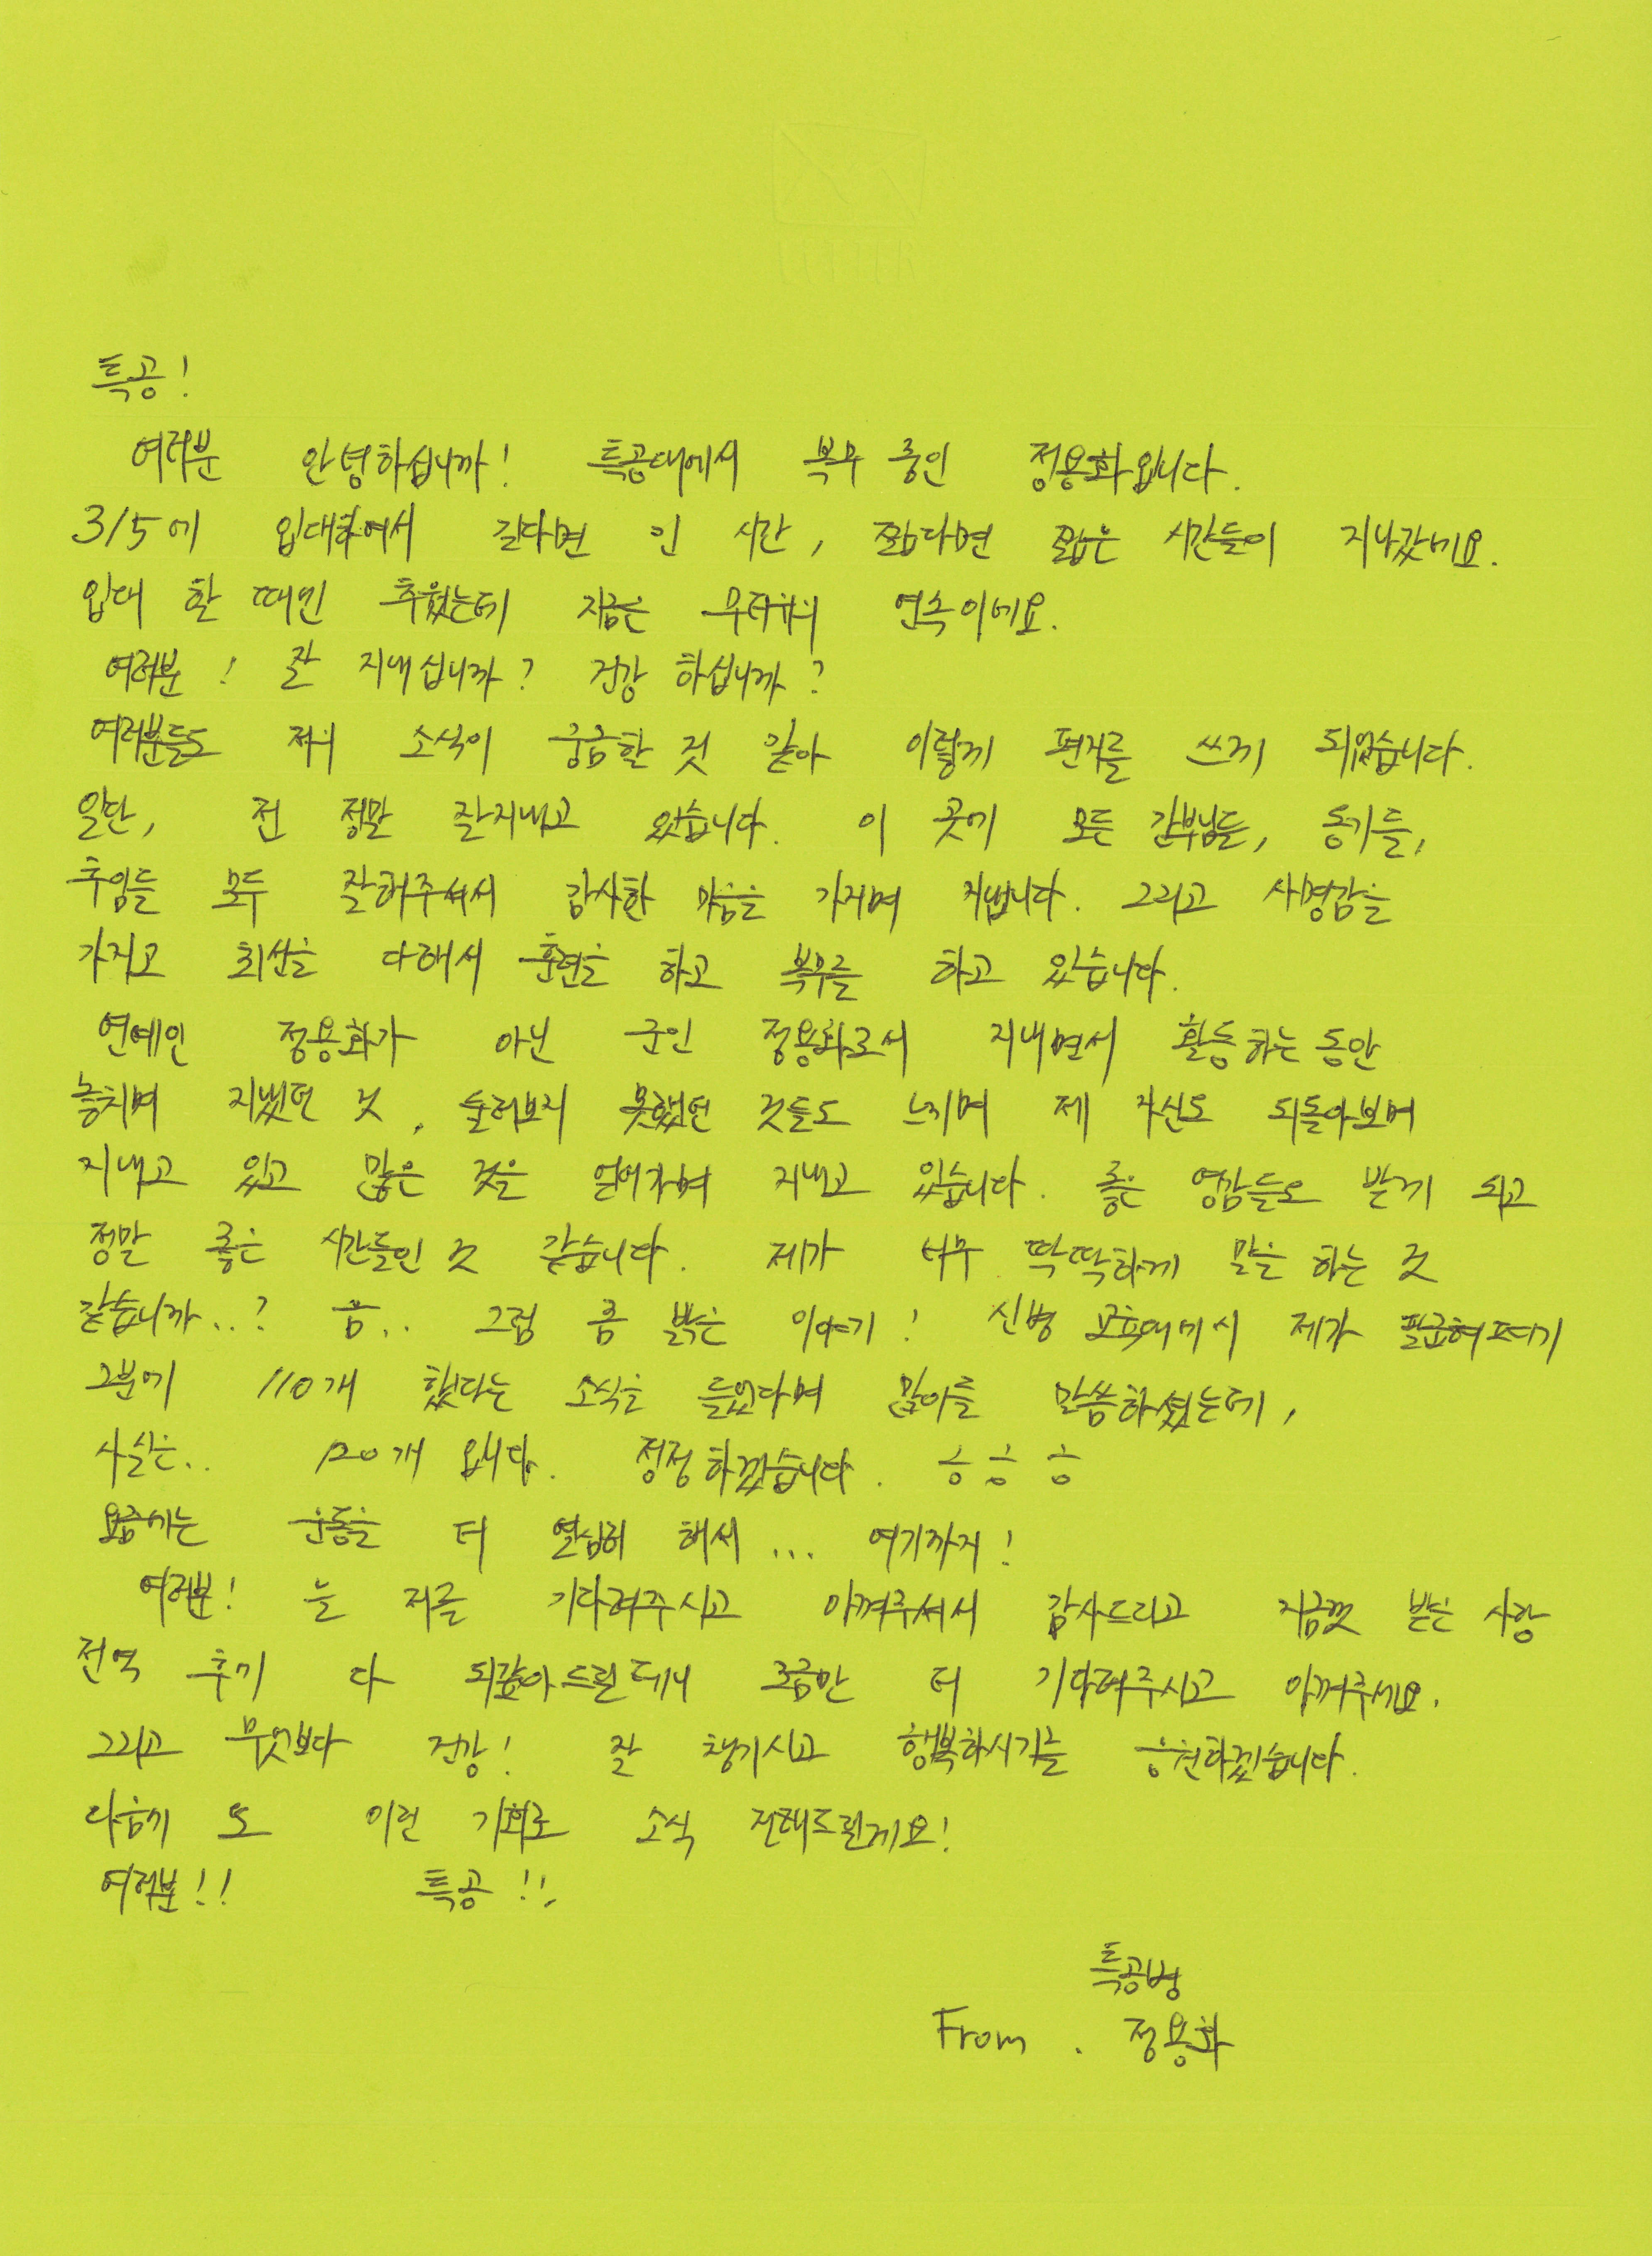 특공!
여러분 안녕하십니까! 특공대에서 복무 중인 정용화입니다.
3/5에 입대하여서 길다면 긴 시간, 짧다면 짧은 시간들이 지나갔네요.
입대 할 때엔 추웠는데 지금은 무더위의 연속이네요.
여러분! 잘 지내십니까? 건강 하십니까?
여러분들도 저의 소식이 궁금할 것 같아 이렇게 편지를 쓰게 되었습니다.
일단, 전 정말 잘지내고 있습니다. 이 곳에 모든 간부님들, 동기들,
후임들 모두 잘해주셔서 감사한 마음을 가지며 지냅니다. 그리고 사명감을
가지고 최선을 다해서 훈련을 하고 복무를 하고 있습니다.
연예인 정용화가 아닌 군인 정용화로서 지내면서 활동하는 동안
놓치며 지냈던 것, 둘러보지 못했던 것들도 느끼며 제 자신도 되돌아보며
지내고 있고 많은 것을 얻어가며 지내고 있습니다. 좋은 영감들도 받게 되고
정말 좋은 시간들인 것 같습니다. 제가 너무 딱딱하게 말을 하는 것
같습니까..? 음.. 그럼 좀 밝은 이야기! 신병 교육대에서 제가 팔굽혀펴기
2분에 110개 했다는 소식을 들었다며 많이들 말씀하셨는데,
사실은.. 120개 입니다. 정정하겠습니다. 승 승 승
요즘에는 운동을 더 열심히 해서... 여기까지!
여러분! 늘 저를 기다려주시고 아껴주셔서 감사드리고 지금껏 받은 사랑
전역 후에 다 되갚아드릴테니 조금만 더 기다려주시고 아껴주세요.
그리고 무엇보다 건강! 잘 챙기시고 행복하시기를 응원하겠습니다.
다음에 또 이런 기회로 소식 전해드릴게요!
여러분!! 특공!!
특공병
From. 정용화